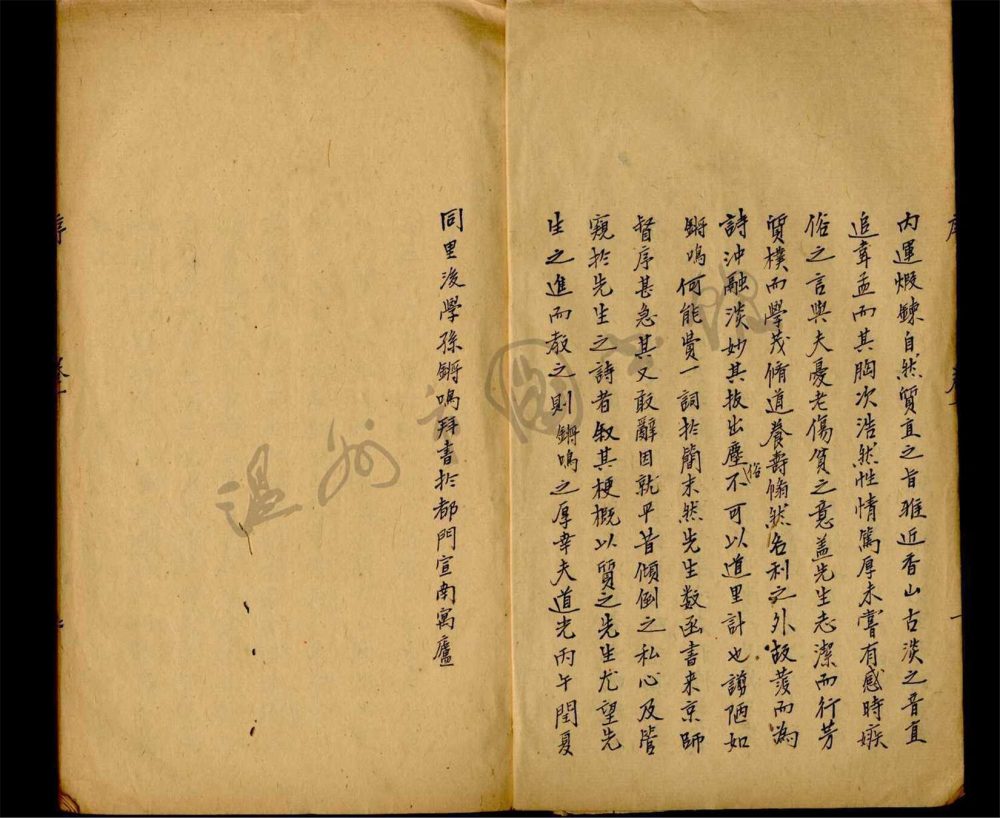 內運煅鍊自然質直之旨雅近香山古淡之音直
追韋孟而其胸次浩然性情篤厚未嘗有感時嫉
俗之言與夫憂老傷貧之意盖先生志潔而行芳
質樸而學茂脩道養壽翛然名利之外故發而為
詩沖融淡妙其拔出塵俗不可以道里計也譾陋如
鏘鳴何能贊一詞於簡末然先生數函書来京師
督序甚急其又敢辭因就平昔傾倒之私心及管
窺於先生之詩者叙其梗概以質之先生尤望先
生之進而教之則鏘鳴之厚幸夫道光丙午閏夏
同里後學孫鏘鳴拜書於都門宣南寓廬
溫州圖